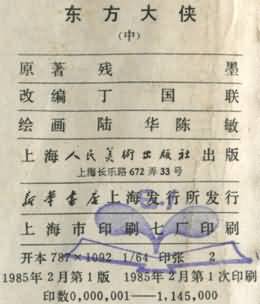 东方大侠
(中)
原著 残墨
改编 丁国联
绘画 陆华 陈敏
上海人民美術出版社出版
上海长乐路672弄33号
新华書店上海发行所发行
上海市印刷七厂印刷
开本 787×1092 1/64 印张 2
1985年2月第1版 1985年2月第1次印刷
印数0,000,001——1,145,000